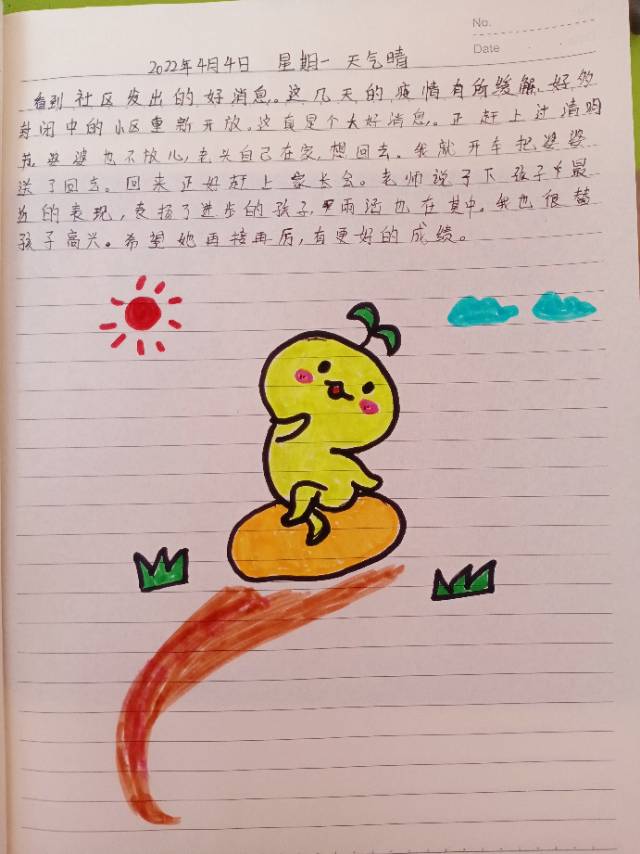 No.
Date
2022年4月4日 星期一 天气晴
看到社区发出的好消息。这几天的疫情有所缓解,好多
封闭中的小区重新开放。这真是个大好消息。正赶上过清明
婆婆也不放心,老头自己在家,想回去。我就开车把婆婆
送了回去。回来正好赶上家长会。老师说了下孩子最
的表现,表扬了进步的孩子,雨涵也在其中。我也很替
孩子高兴。希望她再接再厉,有更好的成绩。